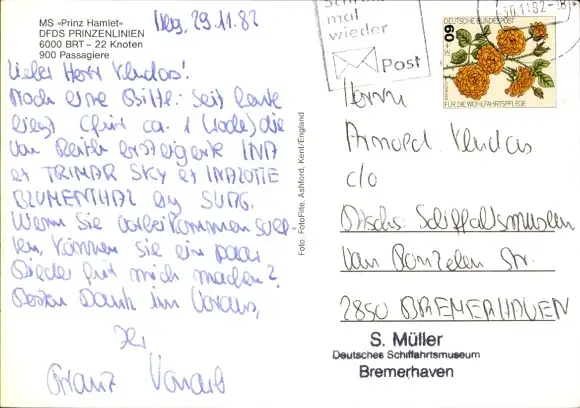 MS »Prinz Hamlet«
DFDS PRINZENLINIEN
6000 BRT – 22 Knoten
900 Passagiere
Hbg, 29.11.82
Lieber Herr Kludas!
Noch eine Bitte: Seit heute
liegt hier ca. 1 Woche die
von Reith ersteigerte INA
ex TRIMAR SKY ex INALOTTE
BLUMENTHAL bei
Wenn Sie vorbeikommen soll-
ten, können Sie ein paar
Bilder für mich machen?
Besten Dank im Voraus,
Ihr
Franz
Foto: FotoFlite, Ashford, Kent/England
mal
wieder
Post
30.11.82
DEUTSCHE BUNDESPOST
60
FÜR DIE WOHLFAHRTSPFLEGE
Herrn
Arnold Kludas
c/o
Dtschs. Schiffahrtsmuseum
Van Ronzelen Str.
2850 BREMERHAVEN
S. Müller
Deutsches Schiffahrtsmuseum
Bremerhaven